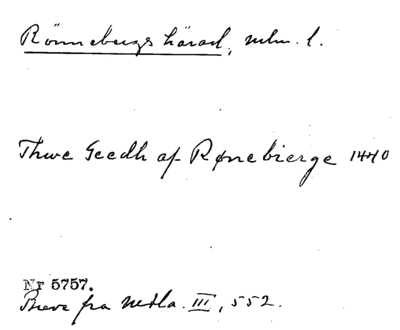 Rönnebergs härad, mlm. l.
Thwe Geedh af Rønebierge 1440
Nr 5757.
Breve fra Midla. III, 552.